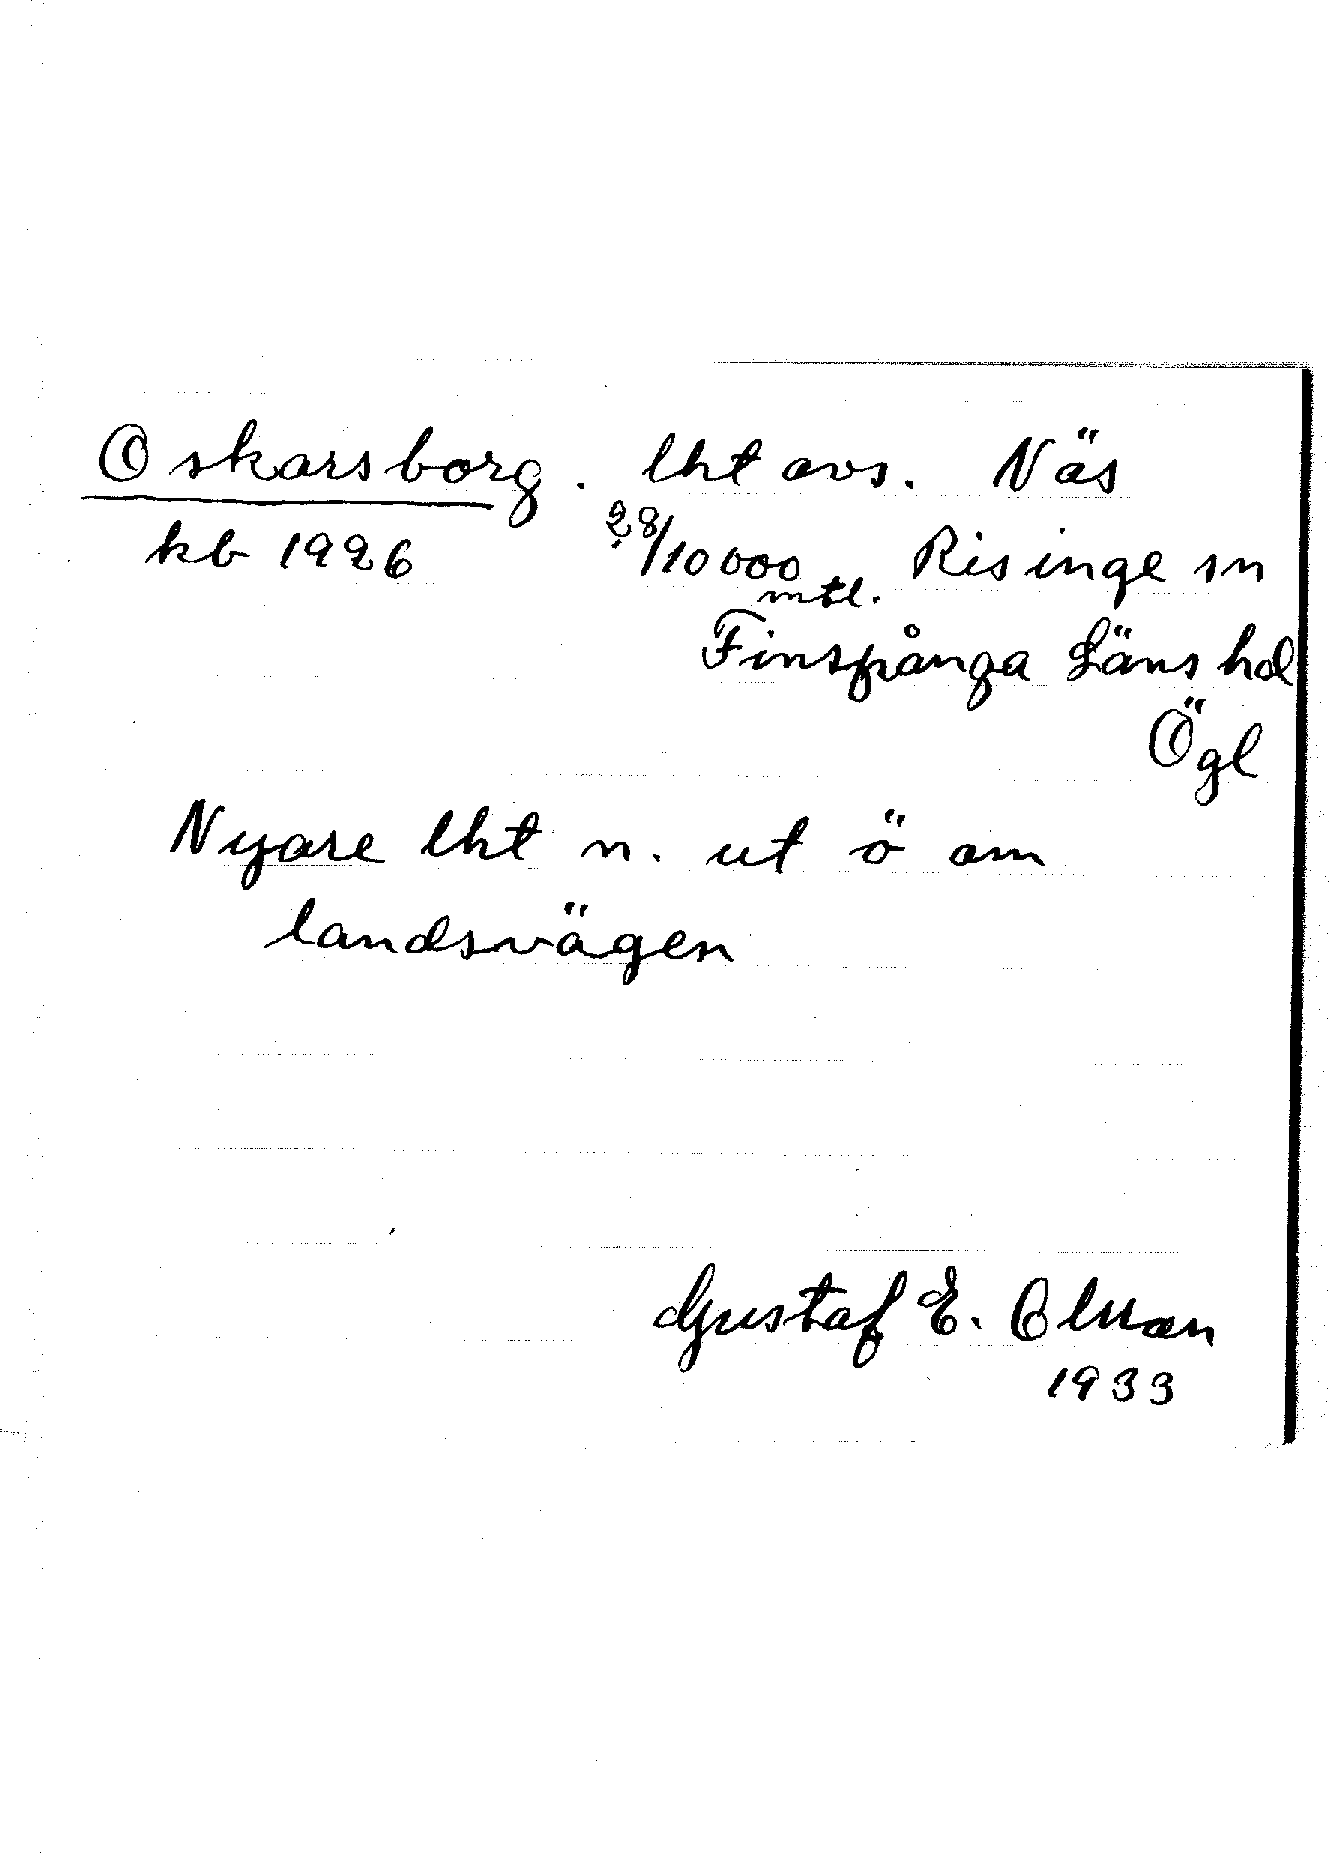 Oskarsborg. lht avs. Näs
kb 1926 28/10000 mtl. Risinge sn
Finspånga Läns hd
Ögl
Nyare lht n. ut ö om
landsvägen
Gustaf E. Olsson
1933